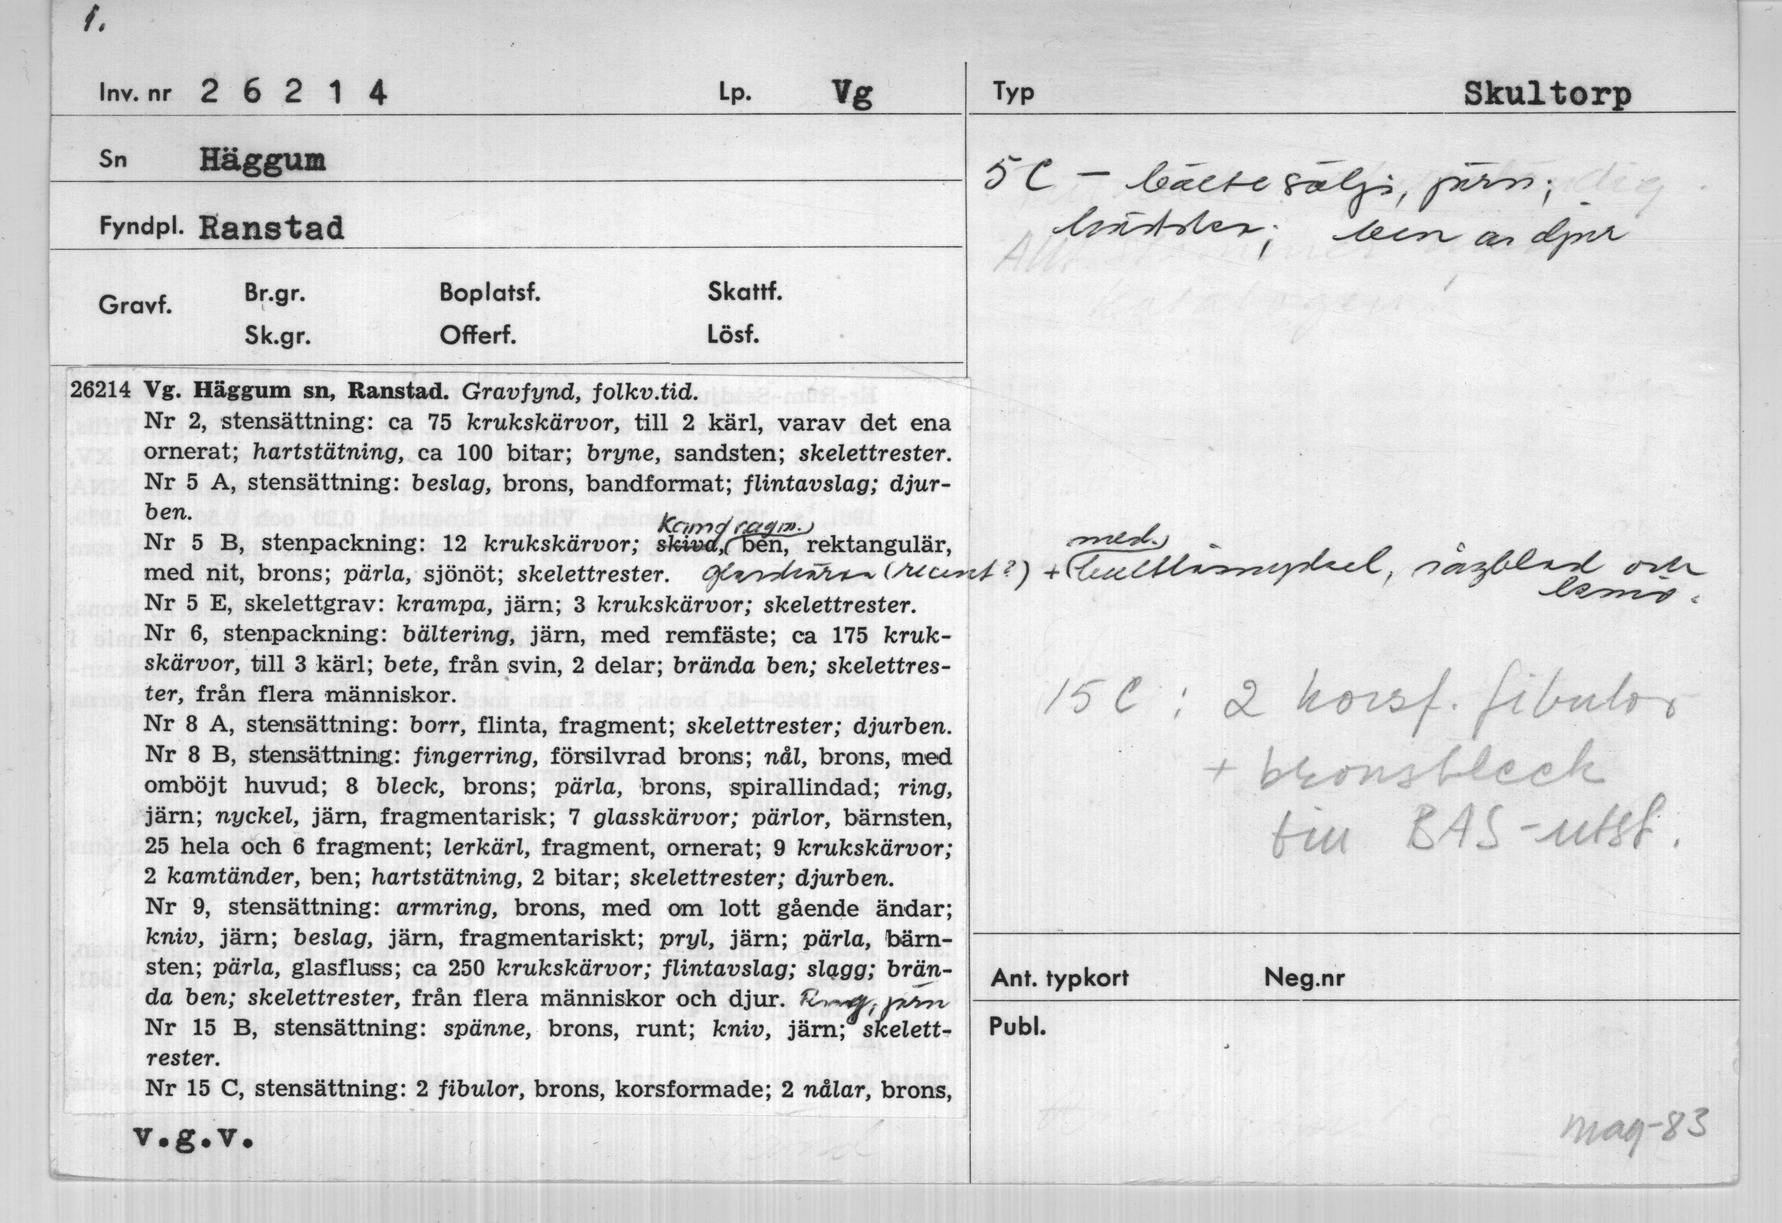 1.
Inv. nr 2 6 2 1 4 Lp. Vg
Sn Häggum
Fyndpl. Ranstad
Gravf. Br.gr. Boplatsf. Skattf.
Sk.gr. Offerf. Lösf.
26214 Vg. Häggum sn, Ranstad. Gravfynd, folkv.tid.
Nr 2, stensättning: ca 75 krukskärvor, till 2 kärl, varav det ena
ornerat; hartstätning, ca 100 bitar; bryne, sandsten; skelettrester.
Nr 5 A, stensättning: beslag, brons, bandformat; flintavslag; djur-
ben.
Kamfragm.
Nr 5 B, stenpackning: 12 krukskärvor; skiva, ben, rektangulär,
med nit, brons; pärla, sjönöt; skelettrester. (recent?) +
Nr 5 E, skelettgrav: krampa, järn; 3 krukskärvor; skelettrester.
Nr 6, stenpackning: bältering, järn, med remfäste; ca 175 kruk-
skärvor, till 3 kärl; bete, från svin, 2 delar; brända ben; skelettres-
ter, från flera människor.
Nr 8 A, stensättning: borr, flinta, fragment; skelettrester; djurben.
Nr 8 B, stensättning: fingerring, försilvrad brons; nål, brons, med
omböjt huvud; 8 bleck, brons; pärla, brons, spirallindad; ring,
järn; nyckel, järn, fragmentarisk; 7 glasskärvor; pärlor, bärnsten,
25 hela och 6 fragment; lerkärl, fragment, ornerat; 9 krukskärvor;
2 kamtänder, ben; hartstätning, 2 bitar; skelettrester; djurben.
Nr 9, stensättning: armring, brons, med om lott gående ändar;
kniv, järn; beslag, järn, fragmentariskt; pryl, järn; pärla, bärn-
sten; pärla, glasfluss; ca 250 krukskärvor; flintavslag; slagg; brän-
da ben; skelettrester, från flera människor och djur. Ring, järn
Nr 15 B, stensättning: spänne, brons, runt; kniv, järn; skelett-
rester.
Nr 15 C, stensättning: 2 fibulor, brons, korsformade; 2 nålar, brons,
v.g.v.
Typ Skultorp
5 C – bältesölja, järn;
ben av djur
med.
och
15 C : 2 korsf. fibulor
+ bronsbleck
till BAS-utst.
Ant. typkort Neg.nr
Publ.
mag-83